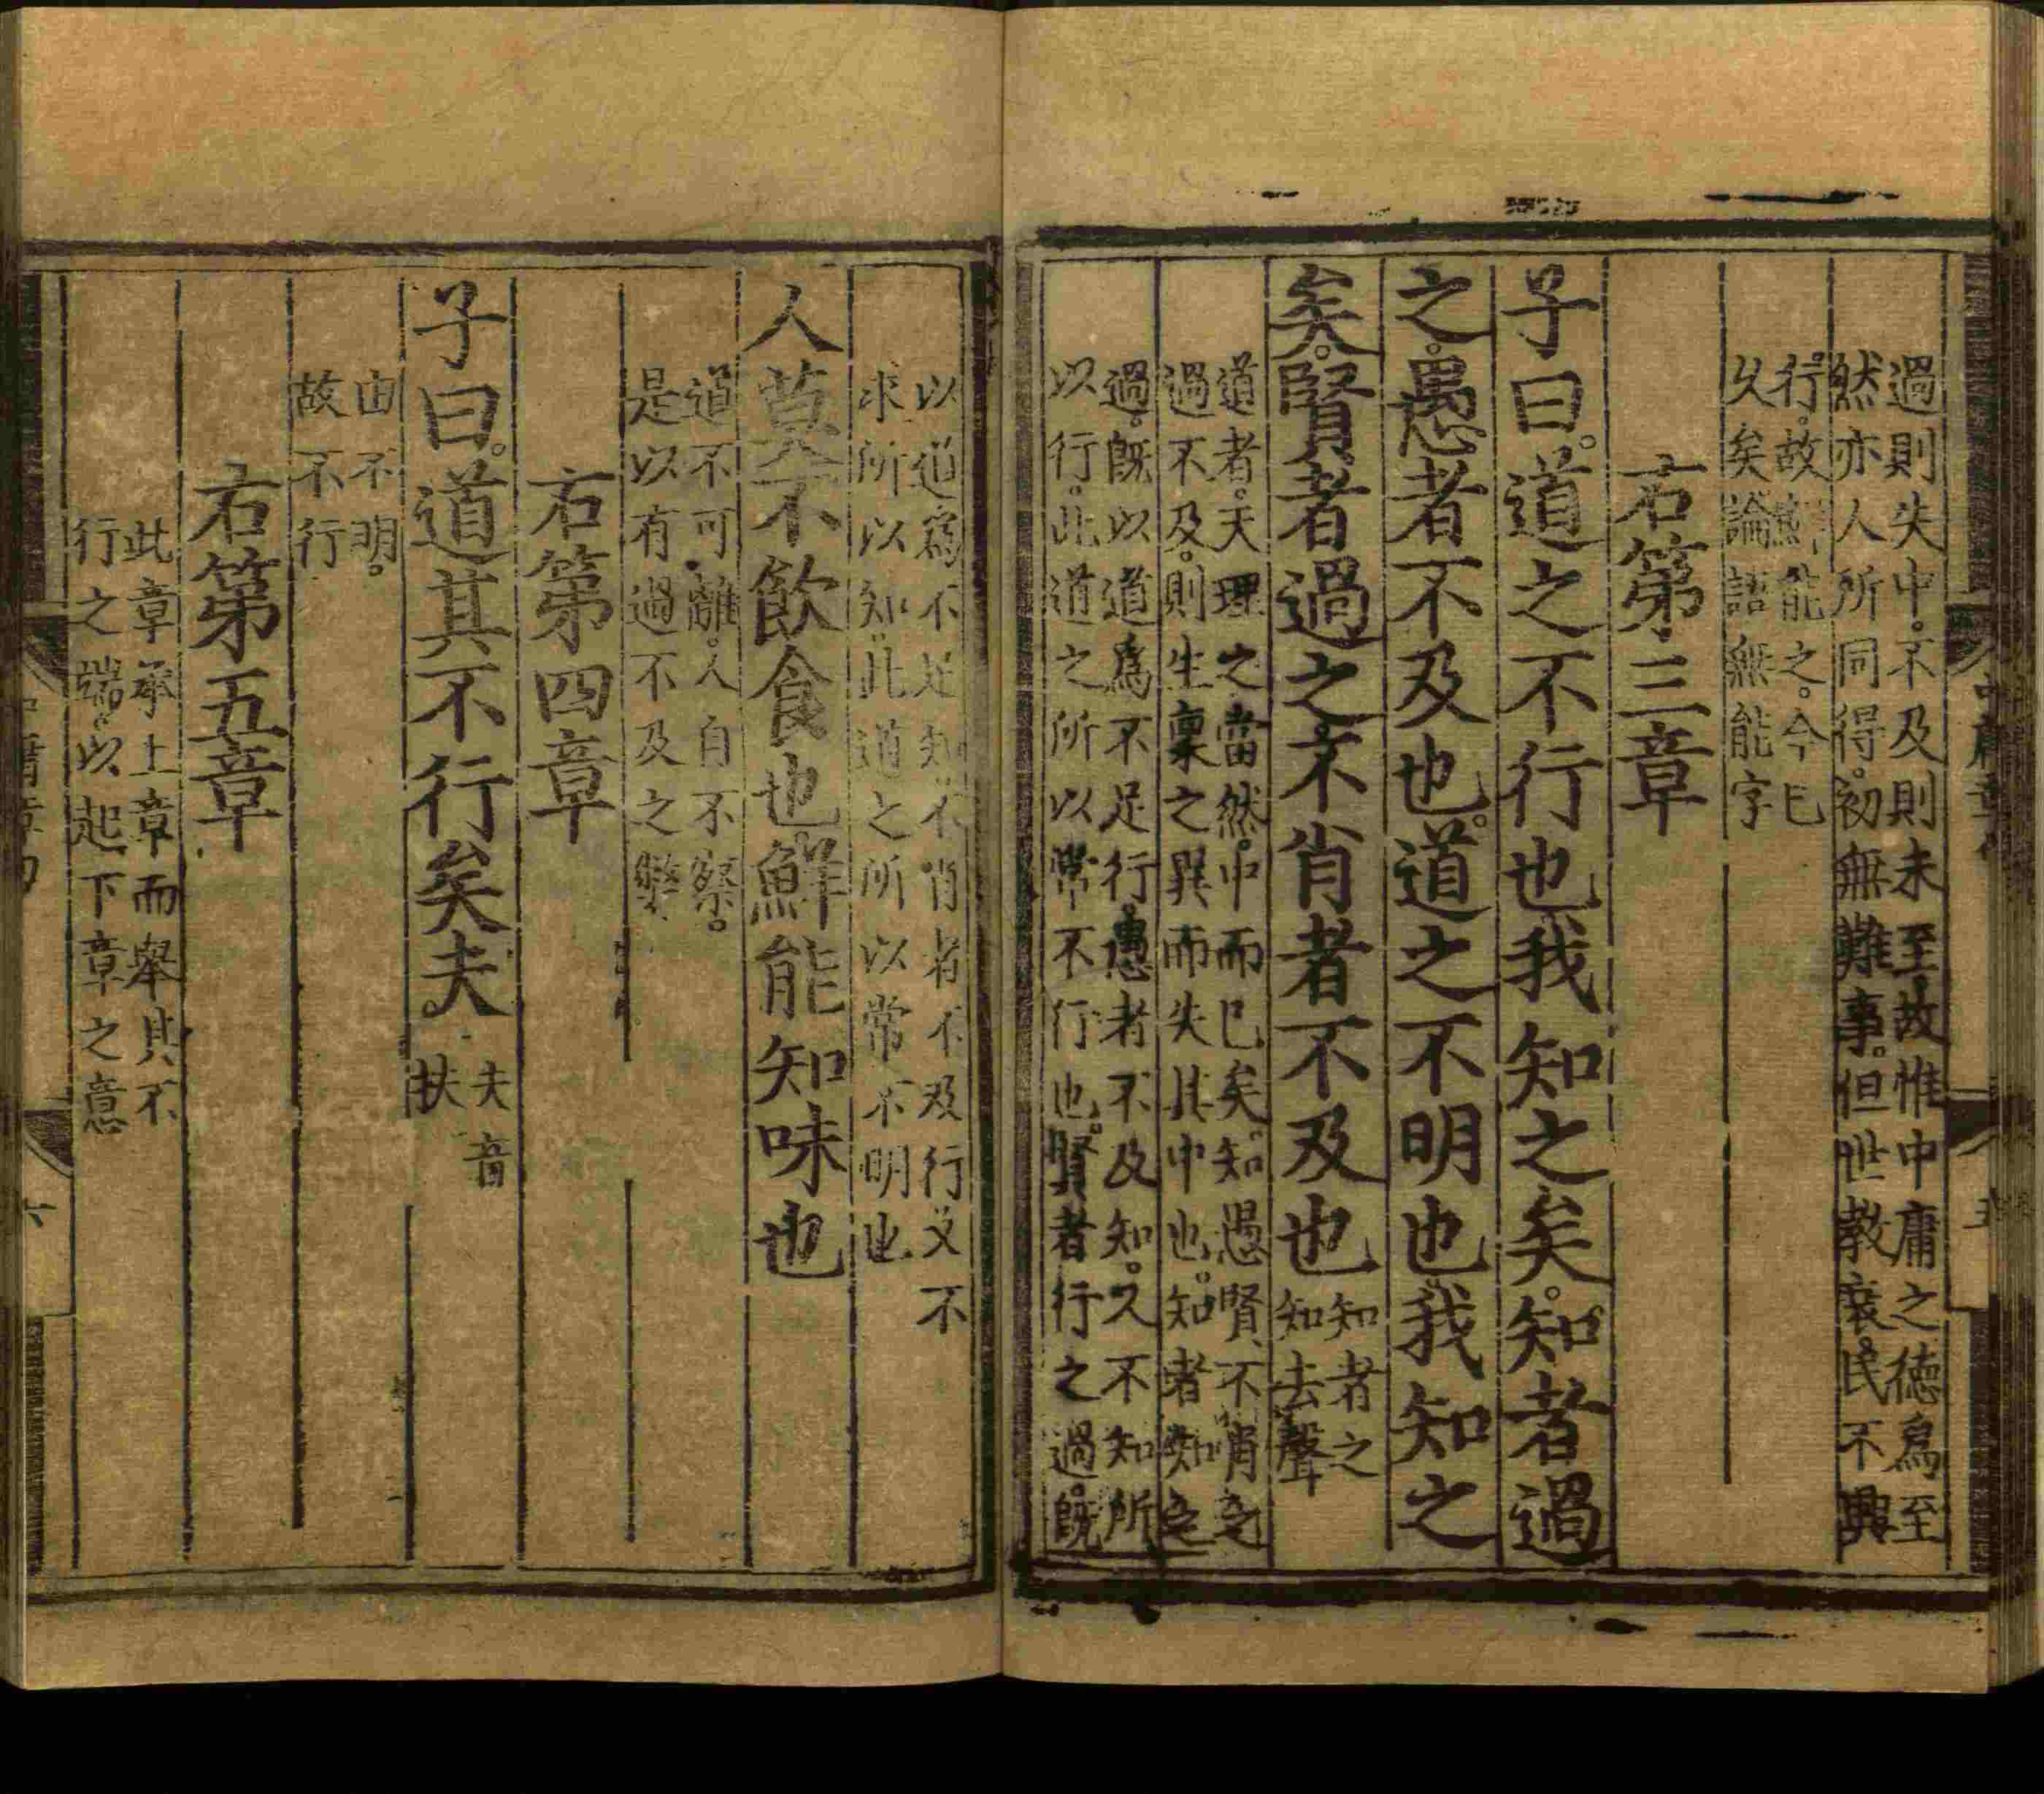 過則失中。不及則未至。故惟中庸之德爲至
然亦人所同得。初無難事。但世教衰。民不興
行。故鮮能之。今已
久矣論語無能字
右第三章
子曰。道之不行也我知之矣。知者過
之。愚者不及也。道之不明也。我知之
矣。賢者過之不肖者不及也
知者之
知去聲
道者。天理之當然。中而已矣。知愚賢不肖之
過不及。則生稟之異而失其中也。知者知之
過。旣以道爲不足行。愚者不及知。又不知所
以行。此道之所以常不行也。賢者行之過。旣
以道爲不足知。不肖者不及行。又不
求所以知。此道之所以常不明也
人莫不飲食也鮮能知味也
道不可離。人自不察。
是以有過不及之弊
右第四章
子曰。道其不行矣夫
夫音
扶
由不明。
故不行
右第五章
此章承上章而舉其不
行之端。以起下章之意